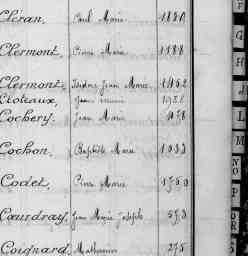 Cléran, Paul Marie
Clermont, Pierre Marie 1188
Clermont, Isidore Jean Marie 1452
Cloteaux, Jean
Cochery, Jean Marie 1078
Cochon, Baptiste Marie 1033
Codet, Pierre Marie 1750
Cœudray, Jean Marie Joseph 573
Coignard, Mathurin 275
H
J
L
M
NO
P